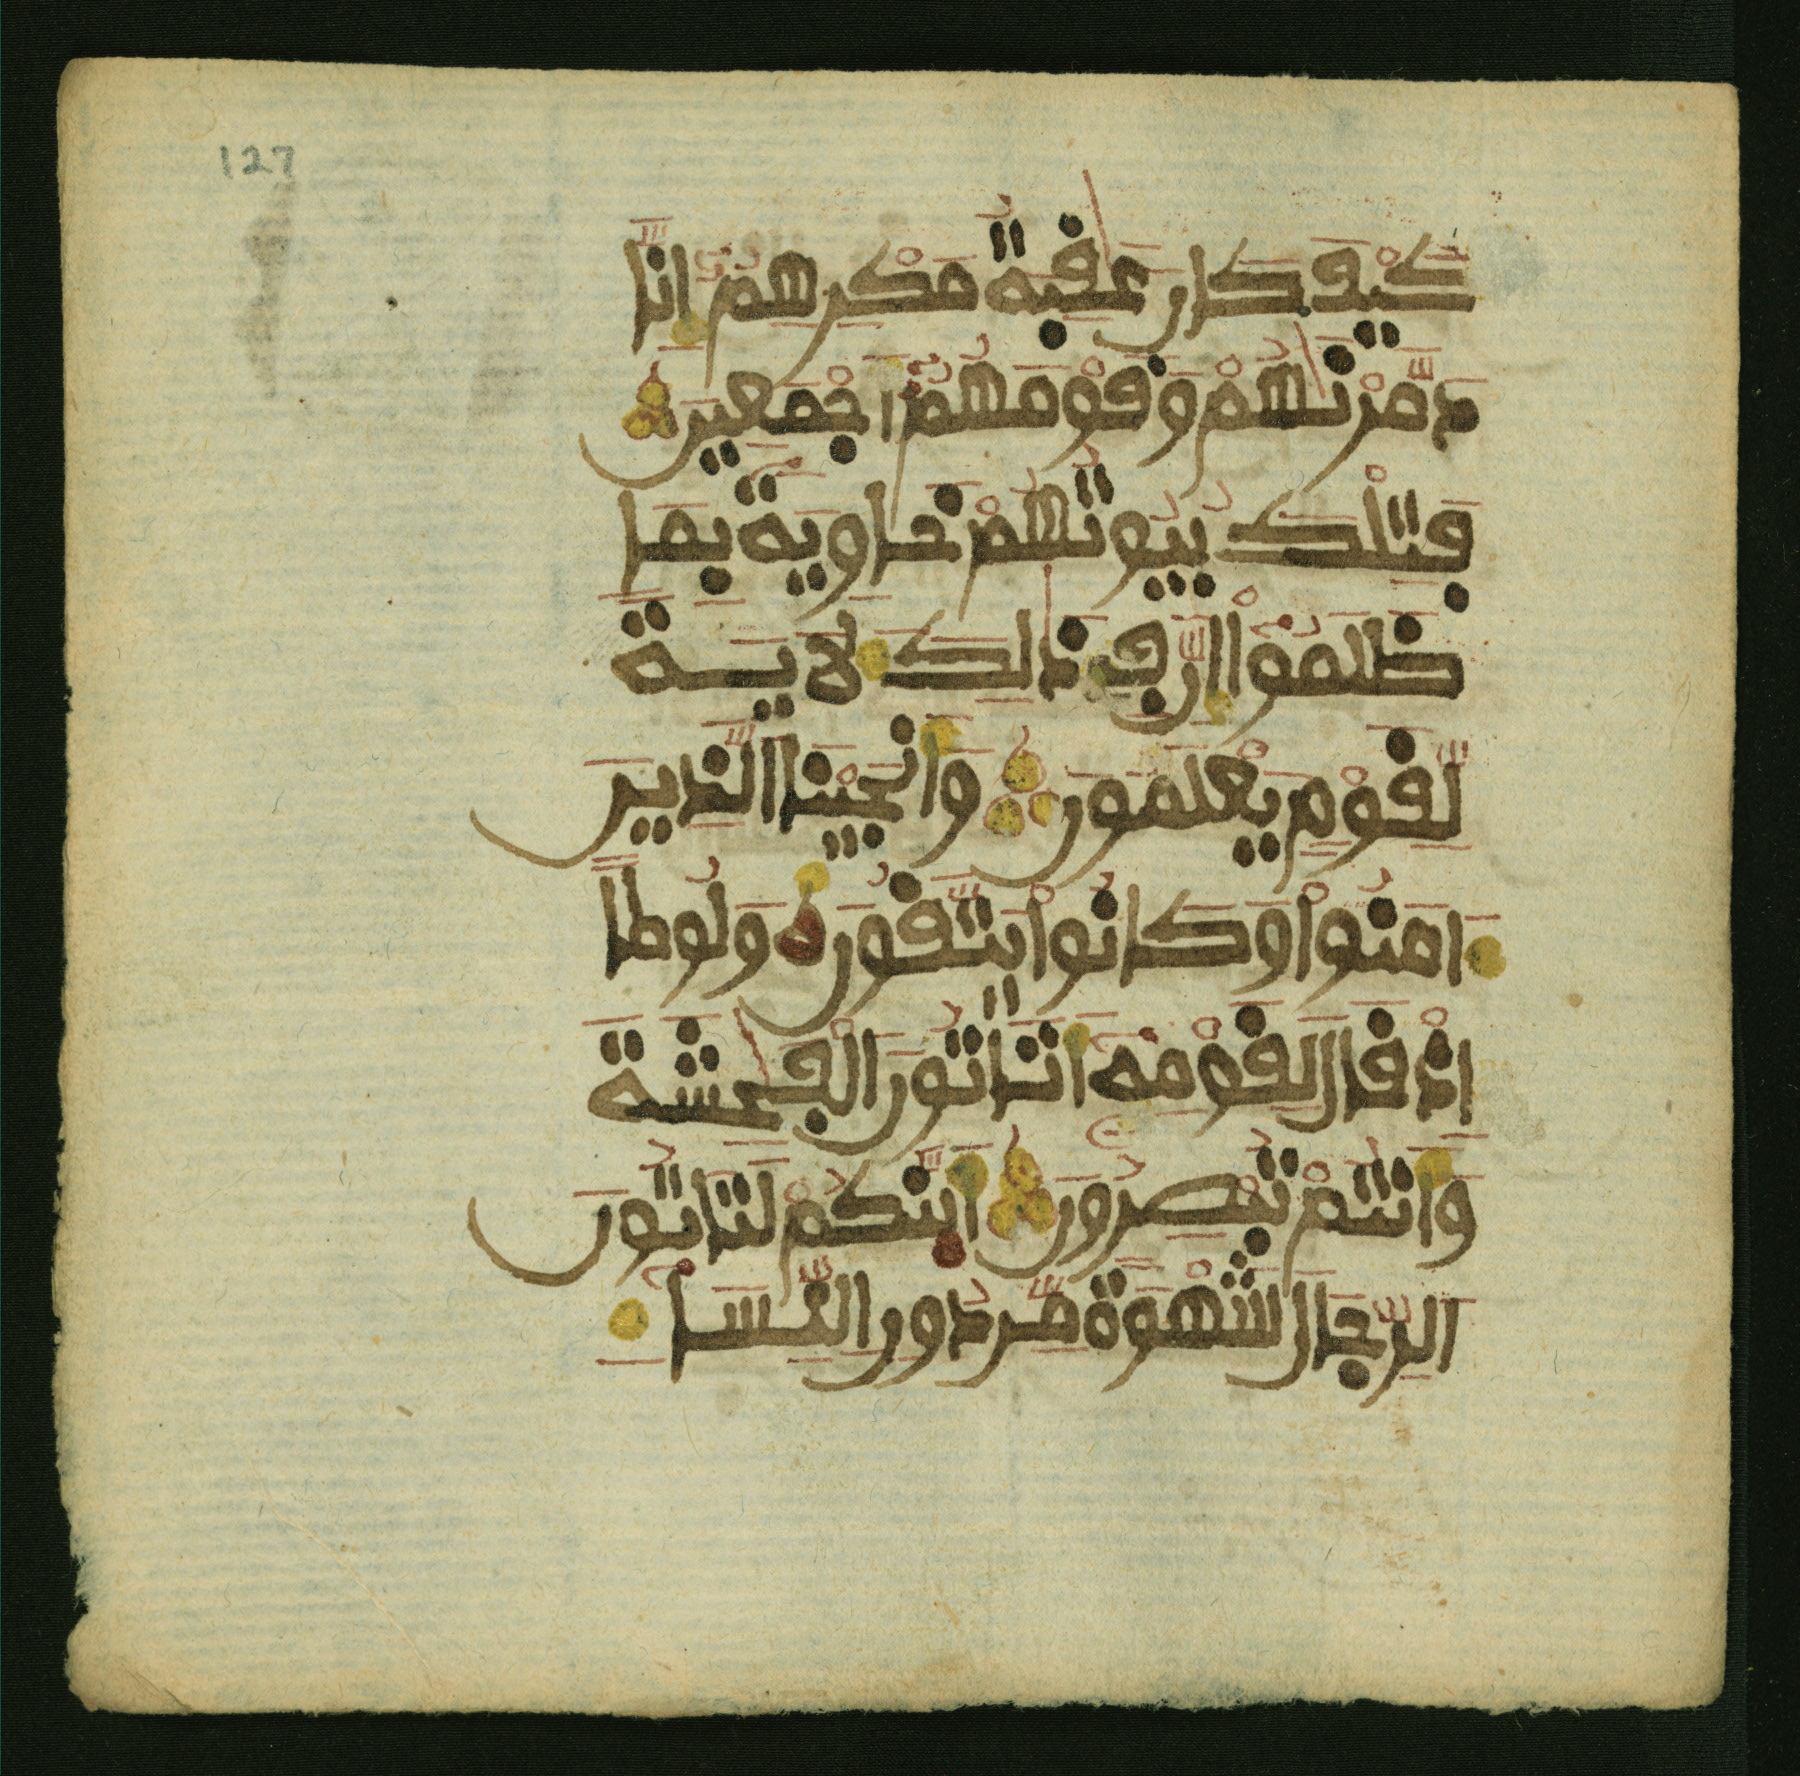 127
كَيْفَ كَانَ عَٰقِبَةُ مَكْرِهِمُۥٓ إِنَّا
دَمَّرْنَٰهُمْ وَقَوْمَهُمُۥٓ أَجْمَعِينَ
فَتِلْكَ بُيُوتُهُمْ خَاوِيَةً بِمَا
ظَلَمُوٓا۟ إِنَّ فِى ذَٰلِكَ لَأيَةً
لِّقَوْمٍ يَعْلَمُونَ وَأَنجَيْنَا الَّذِينَ
ءَامَنُوا۟ وَكَانُوا۟ يَتَّقُونَ وَلُوطًا
إِذْ قَالَ لِقَوْمِهِۦٓ أَتَاتُونَ الْفَٰحِشَةَ
وَأَنتُمْ تُبْصِرُونَ أَئِنَّكُمْ لَتَاتُونَ
الرِّجَالَ شَهْوَةً مِّن دُونِ النِّسَآءِ